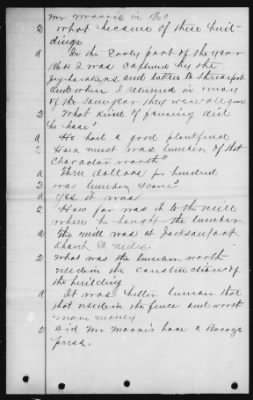 Mr Morris in 1860
Q What became of these buil-
dings
A In the Early part of the year
1863 I was captured by the
Jayhawkers and taken to the
and when I returned in May
of the same year they were all gone
Q What kind of fencing did
he have?
A He had a good plank fence
Q How much was lumber of that
Character worth?
A Three dollars per hundred
Q Was lumber scarce?
A Yes it was
Q How far was it to the mill
where he bought the lumber
A The mill was at Jacksonport
about miles.
Q What was the lumber worth
used in the construction of
the building
A It was better lumber that
that used in the fence and worth
more money
Q Did Mr Morris have a
press.